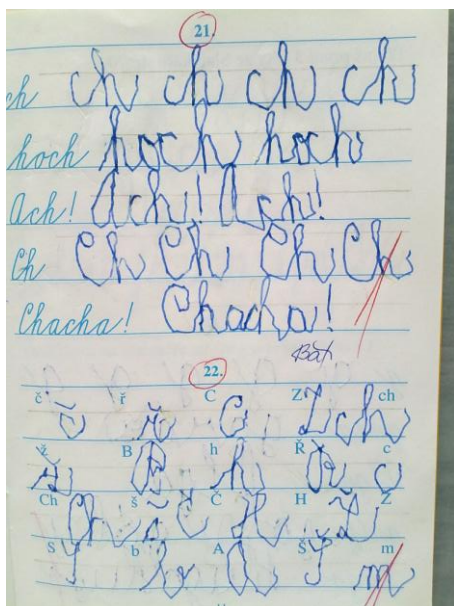 21.
ch ch ch ch ch
hoch hoch hoch
Ach! Ach! Ach!
Ch Ch Ch Ch Ch
Chacha! Chacha!
22.
č ř C Z ch
č ř C Z ch
ž B h Ř c
ž B h Ř c
Ch š Č H Ž
Ch š Č H Ž
S b A Š m
S b A Š m